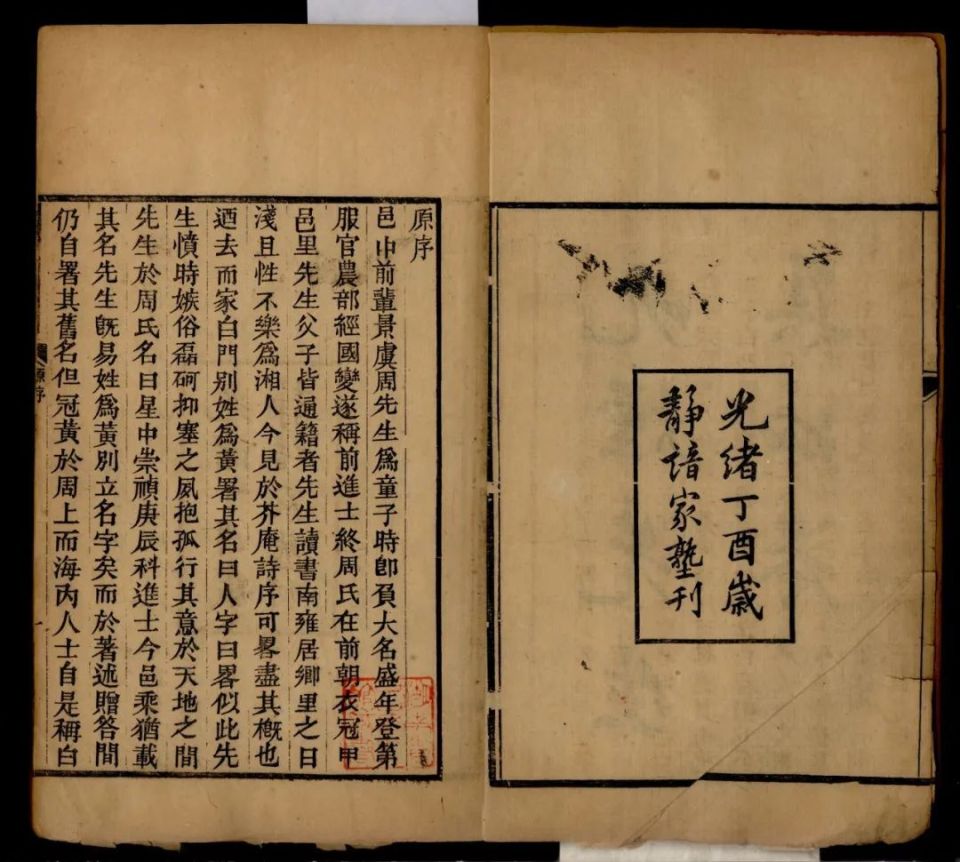 光緒丁酉歲
靜谙家塾刊
原序
邑中前輩景虞周先生爲童子時卽負大名盛年登第
服官農部經國變遂稱前進士終周氏在前朝衣冠甲
邑里先生父子皆通籍者先生讀書南雍居鄉里之日
淺且性不樂爲湘人今見於芥庵詩序可畧盡其槪也
迺去而家白門别姓爲黃署其名曰人字曰畧似此先
生憤時嫉俗磊砢抑塞之夙抱孤行其意於天地之間
先生於周氏名曰星中崇禎庚辰科進士今邑乘猶載
其名先生旣易姓爲黃別立名字矣而於著述贈答間
仍自署其舊名但冠黃於周上而海內人士自是稱白
原序
一